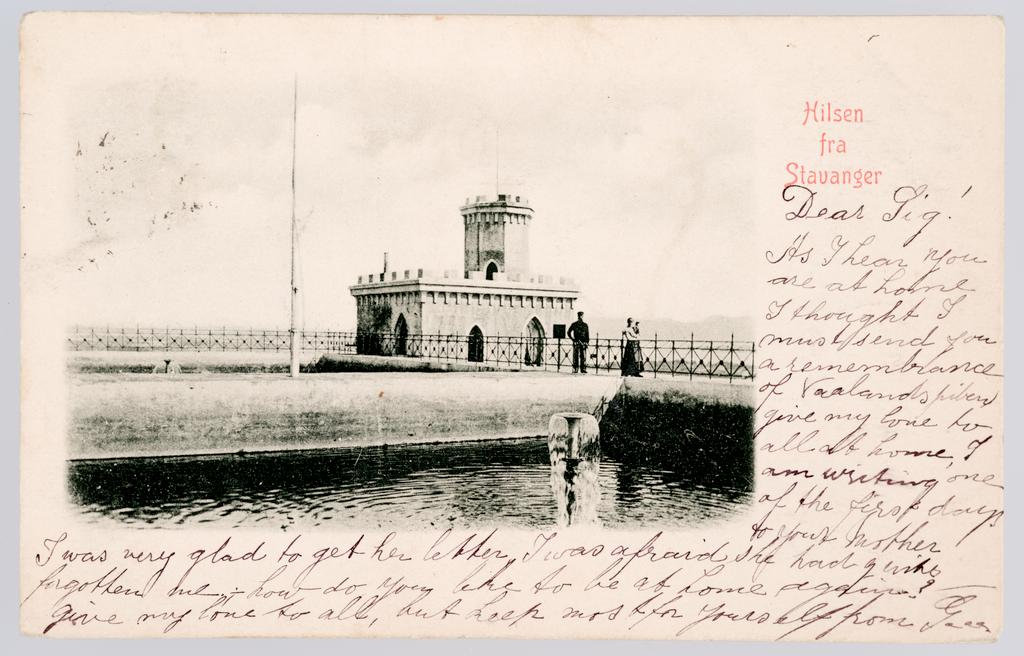 Hilsen
fra
Stavanger
Dear Sig!
As I hear you
are at home
I thought I
must send you
a remembrance
of Vaalandspiben
give my love to
all at home, I
am writing one
of the first days
to your Mother
I was very glad to get her letter, I was afraid she had quite
forgotten me, - how do you like to be at home again?
give my love to all, but keep most for yourself from